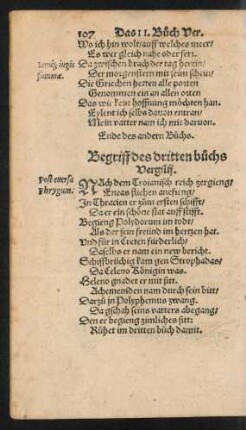 107 Das II. Büch Ver.
Wo ich hin wolt/auff welches meer/
Es wer gleich nahe oder fert.
Da zwischen brach der tag herein/
Der morgenstern mit sein schein/
Die Griechen hetten alle porten
Genommen ein an allen orten
Das wir kein hoffnung möchten han.
Eylent ich selbs dauon entran/
Mein vatter nam ich mit daruon.
Ende des andern Büchs.
Begriff des dritten büchs
Vergilij.
Post euersā
Phrygium.
NAch dem Troianisch reich zergieng/
Eneas fliehen anefieng/
In Thracien er zům ersten schifft/
Da er ein schöne stat auff stifft.
Begieng Polydorum im todt/
Als der sein freünd im hertzen hat.
Vnd für in Creten fürderlich/
Daselbs er nam ein new bericht.
Schiffbrüchig kam gen Strophadas/
Da Celeno Königin was.
Heleno gnadet er mit sitt.
Achemeniden nam durch sein bitt/
Darzů in Polyphemus zwang.
Da gschach seins vatters abegang/
Den er begieng zimliches sitt:
Růhet im dritten büch damit.